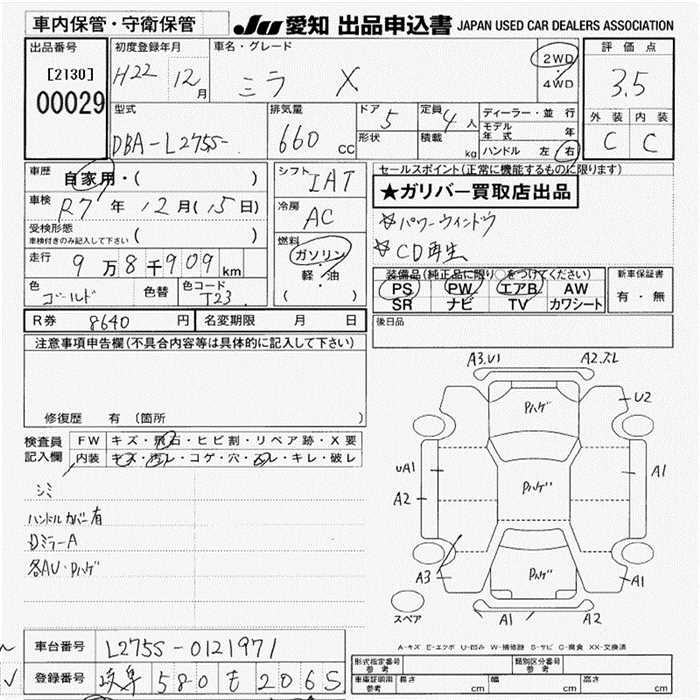 車内保管・守衛保管
JU 愛知 出品申込書 JAPAN USED CAR DEALERS ASSOCIATION
出品番号 初度登録年月 車名・グレード 評価点
[2130] H22 12月 ミラ X 2WD・4WD 3.5
00029
型式 排気量 ドア 5 定員 4人 ディーラー・並行
外装 内装
DBA-L275S- 660cc 形状 積載 kg モデル年式 年
ハンドル 左 右
C C
車歴 自家用・( ) シフト IAT セールスポイント(正常に機能するものに限ります)
★ガリバー買取店出品
車検 R7年 12月(15日) 冷房 AC
☆パワーウィンドウ
受検形態 ( )
車検付きのみ記入して下さい
☆CD再生
走行 9万8千909km 燃料 ガソリン 軽・油 ( )
装備品(純正品に限り○をつけてください) 新車保証書
色 ゴールド 色替 色コード T23
PS PW エアB AW 有・無
SR ナビ TV カワシート
R券 8640円 名変期限 月 日 後日品
注意事項申告欄(不具合内容等は具体的に記入して下さい)
修復歴 有(箇所 )
検査員記入欄 FW キズ・飛石・ヒビ割・リペア跡・X要
内装 キズ・汚レ・コゲ・穴・スレ・キレ・破レ
シミ
ハンドルカバー有
DミラーA
各AU・Pハゲ
A3.U1 A2.スレ
Pハゲ U2
UA1 Pハゲ A1
A2
A3 Pハゲ A1
スペア A1 A2
A-キズ E-エクボ U-凹み W-補修跡 S-サビ C-腐食 XX-交換済
車台番号 L275S-0121971
登録番号 岐阜 580 モ 2065
形式指定番号 参考 類別区分番号 参考
車庫証明寸法 参考 長さ cm 幅 cm 高さ cm